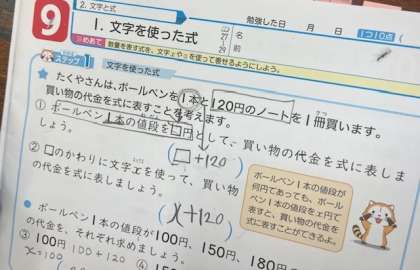 2. 文字と式
9
1. 文字を使った式
27
29
勉強した日 月 日
1つ10点
名
前
めあて 数量を表す式を、文字xやaを使って表せるようにしよう。
ステップ1
文字を使った式
★ たくやさんは、ボールペンを1本と120円のノートを1冊買います。
買い物の代金を式に表すことを考えます。
① ボールペン1本の値段を□円として、買い物の代金を式に表しま
しょう。
(□+120)
② □のかわりに文字xを使って、買い物
の代金を式に表しましょう。
(x+120)
ボールペン1本の値段が
何円であっても、ボール
ペン1本の値段をx円で
表すと、買い物の代金を
式に表すことができるよ。
● ボールペン1本の値段が100円、150円、180円
の代金を、それぞれ求めましょう。
③ 100円 100+120
x=100
④ 150